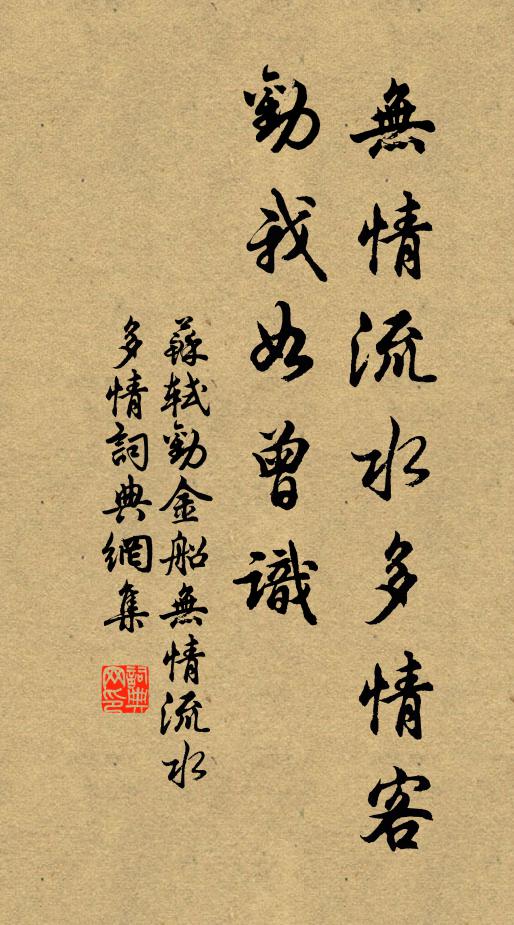 無情流水多情客
勸我如曾識
蘇軾勸金船無情流水
多情詞典網集
詞典
网印